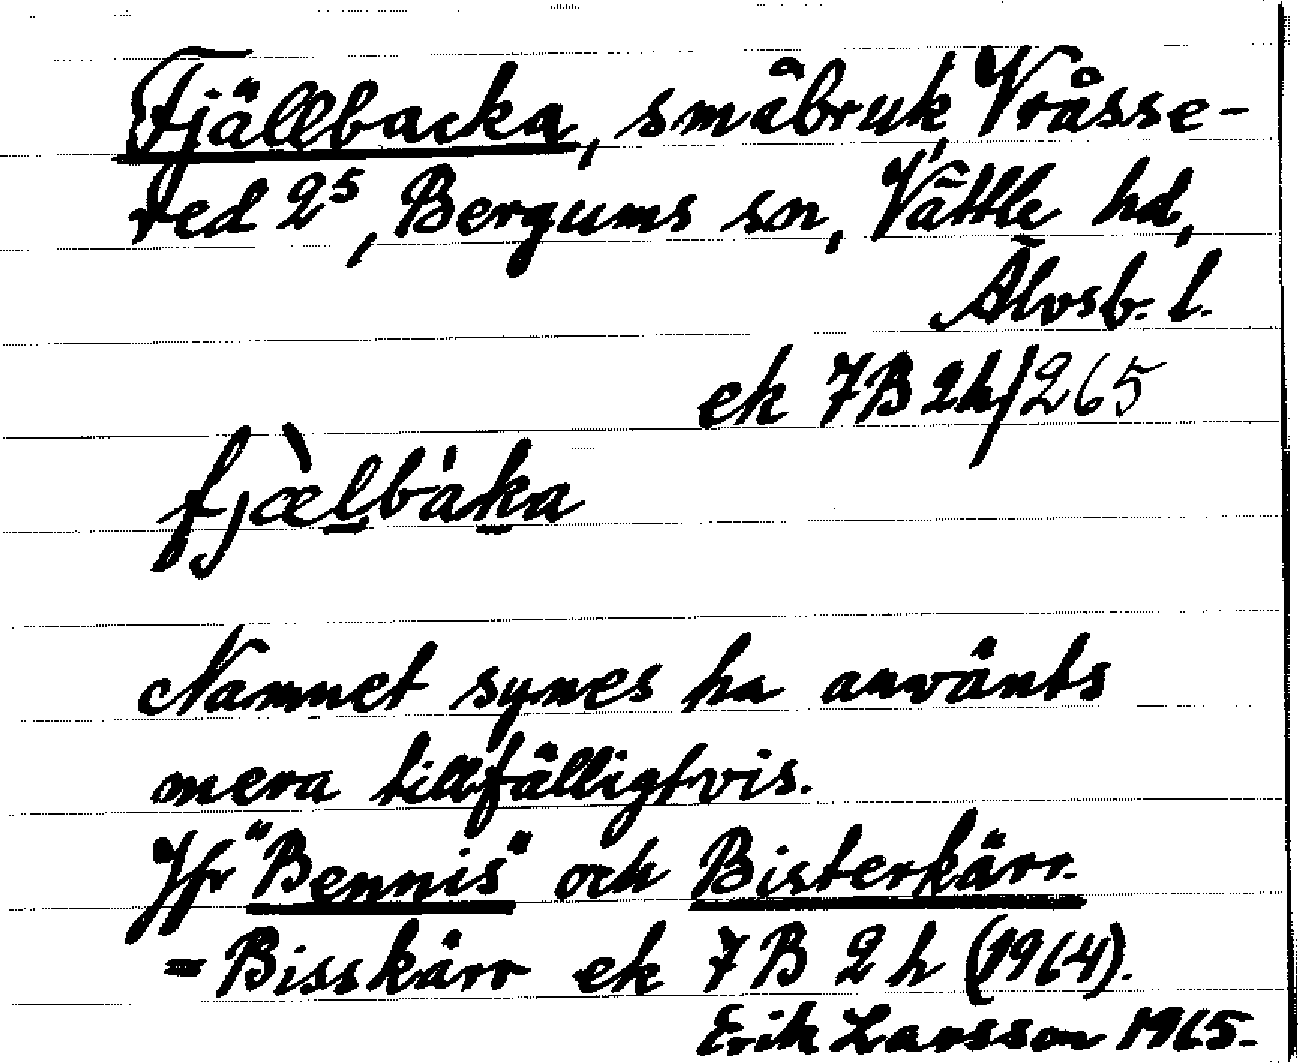 Fjällbacka, småbruk, Vråsse-
red 2⁵, Bergums sn, Vättle hd,
Älvsb. l.
ek 7B 2h/265
fjæ̀lbàka
Namnet synes ha använts
mera tillfälligtvis.
Jfr "Bennis" och Bisterkärr.
= Bisskärr ek 7B 2h (1964).
Erik Larsson 1965.